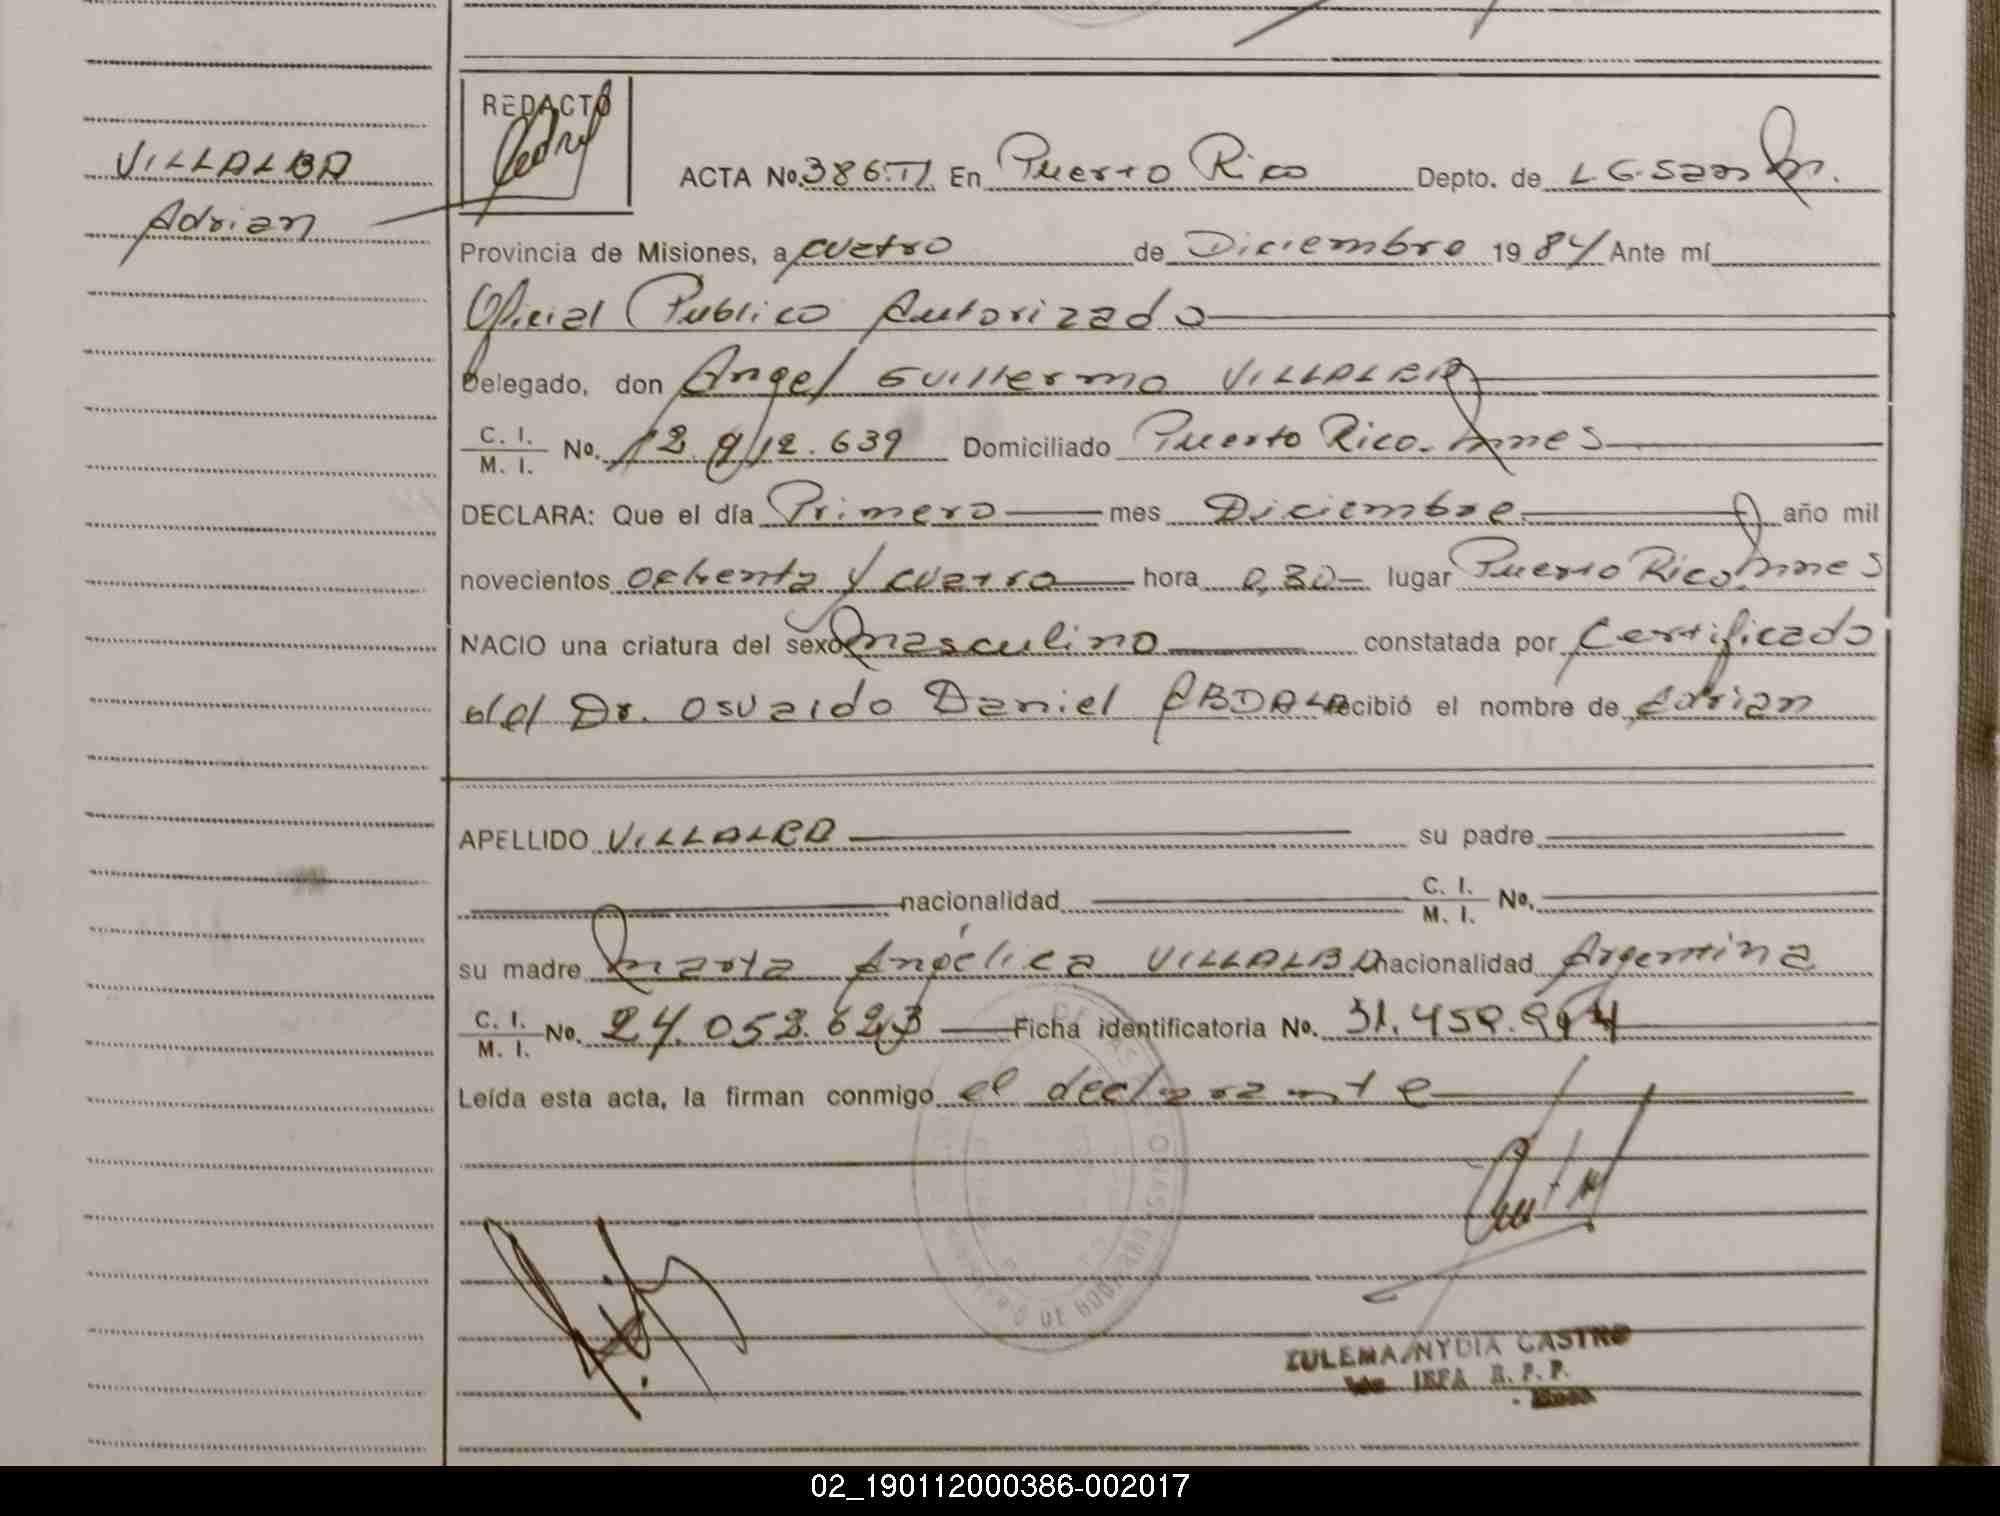 VILLALBA
Adrian
REDACTÓ
ACTA No. 386.TI En Puerto Rico Depto. de L.G.San M.
Provincia de Misiones, a cuatro de Diciembre 1984 Ante mí
Oficial Publico Autorizado
Delegado, don Angel Guillermo VILLALBA
C. I.
M. I. No. 12.912.639 Domiciliado Puerto Rico. Mnes
DECLARA: Que el día Primero mes Diciembre año mil
novecientos ochenta y cuatro hora 0,30 lugar Puerto Rico Mnes
NACIO una criatura del sexo masculino constatada por Certificado
del Dr. Osvaldo Daniel ABDALA recibió el nombre de Adrian
APELLIDO VILLALBA su padre
nacionalidad C. I.
M. I. No.
su madre Marta Angélica VILLALBA nacionalidad Argentina
C. I.
M. I. No. 24.053.623 Ficha identificatoria No. 31.459.
Leída esta acta, la firman conmigo el declarante
ZULEMA NYDIA CASTRO
JEFA R. P. P.
02_190112000386-002017